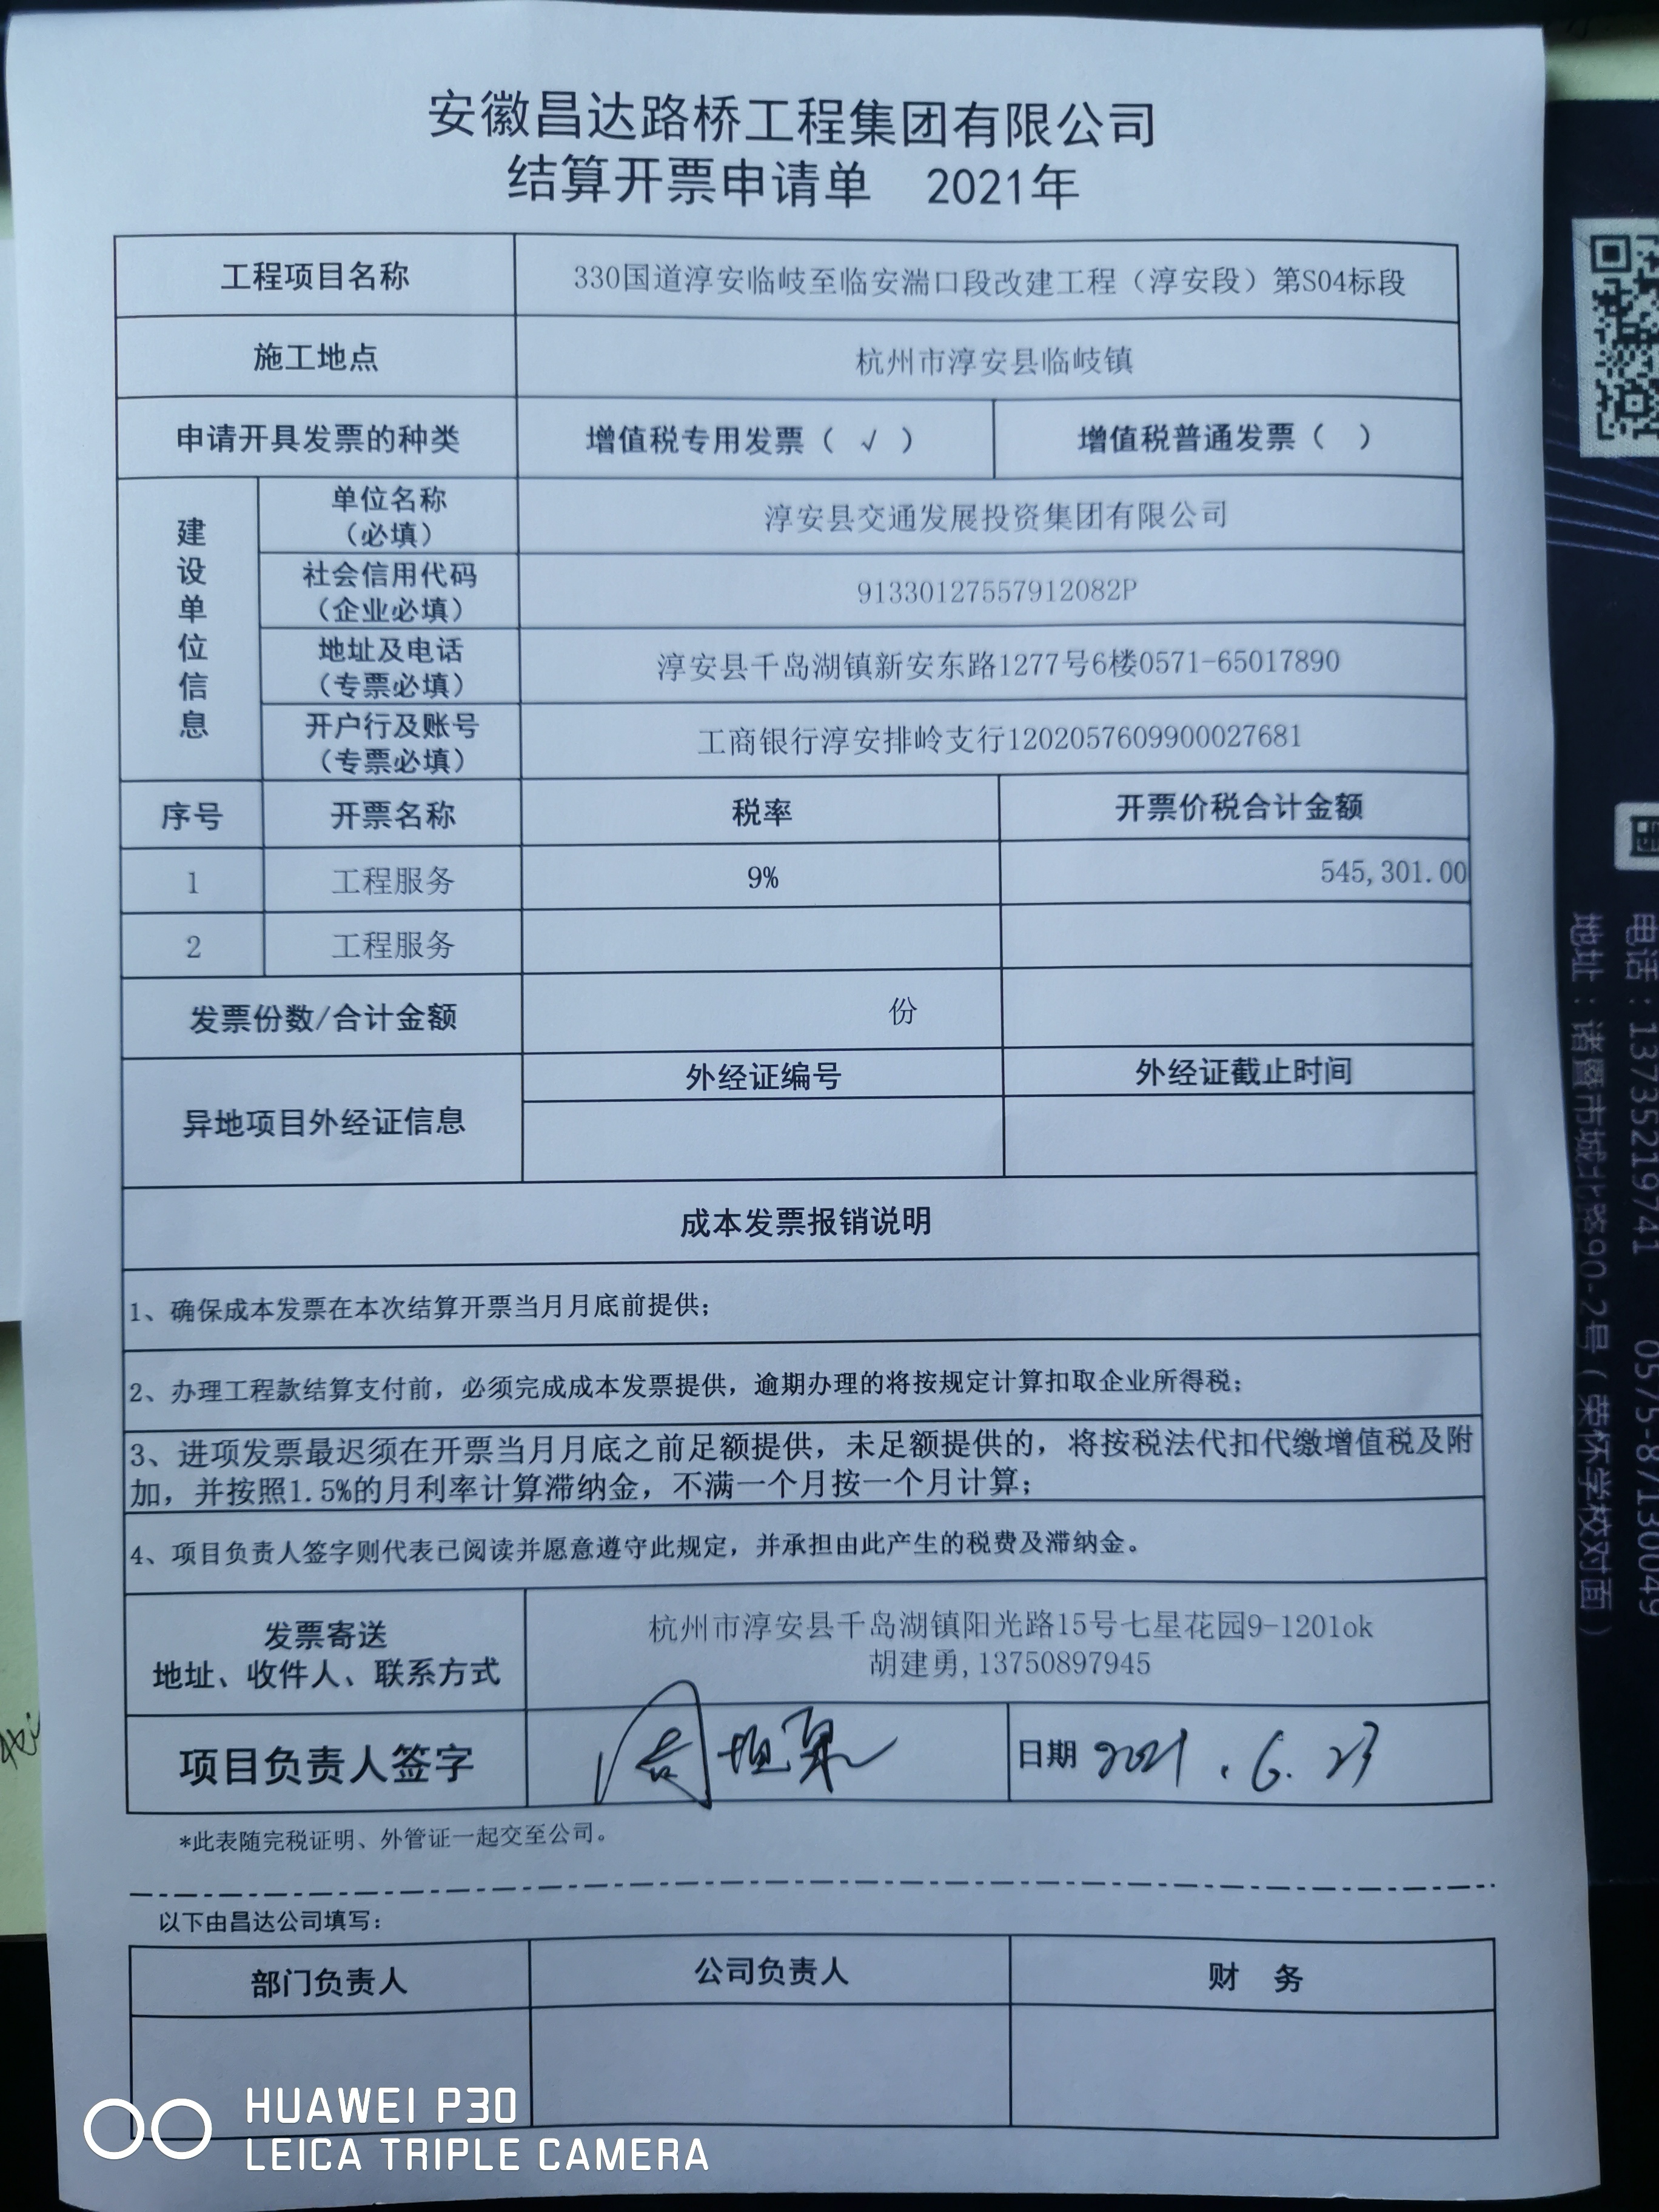 安徽昌达路桥工程集团有限公司
结算开票申请单 2021年
工程项目名称 330国道淳安临岐至临安湍口段改建工程（淳安段）第S04标段
施工地点 杭州市淳安县临岐镇
申请开具发票的种类 增值税专用发票（ √ ） 增值税普通发票（ ）
建设单位信息
单位名称
（必填）
淳安县交通发展投资集团有限公司
社会信用代码
（企业必填）
91330127557912082P
地址及电话
（专票必填）
淳安县千岛湖镇新安东路1277号6楼0571-65017890
开户行及账号
（专票必填）
工商银行淳安排岭支行1202057609900027681
序号 开票名称 税率 开票价税合计金额
1 工程服务 9% 545,301.00
2 工程服务
发票份数/合计金额 份
异地项目外经证信息 外经证编号 外经证截止时间
成本发票报销说明
1、确保成本发票在本次结算开票当月月底前提供；
2、办理工程款结算支付前，必须完成成本发票提供，逾期办理的将按规定计算扣取企业所得税；
3、进项发票最迟须在开票当月月底之前足额提供，未足额提供的，将按税法代扣代缴增值税及附
加，并按照1.5%的月利率计算滞纳金，不满一个月按一个月计算；
4、项目负责人签字则代表已阅读并愿意遵守此规定，并承担由此产生的税费及滞纳金。
发票寄送
地址、收件人、联系方式
杭州市淳安县千岛湖镇阳光路15号七星花园9-1201ok
胡建勇,13750897945
项目负责人签字 日期 2021.6.23
*此表随完税证明、外管证一起交至公司。
以下由昌达公司填写：
部门负责人 公司负责人 财 务
电话：13735219741 0575-87130049
地址：诸暨市城北路90-2号（荣怀学校对面）
HUAWEI P30
LEICA TRIPLE CAMERA